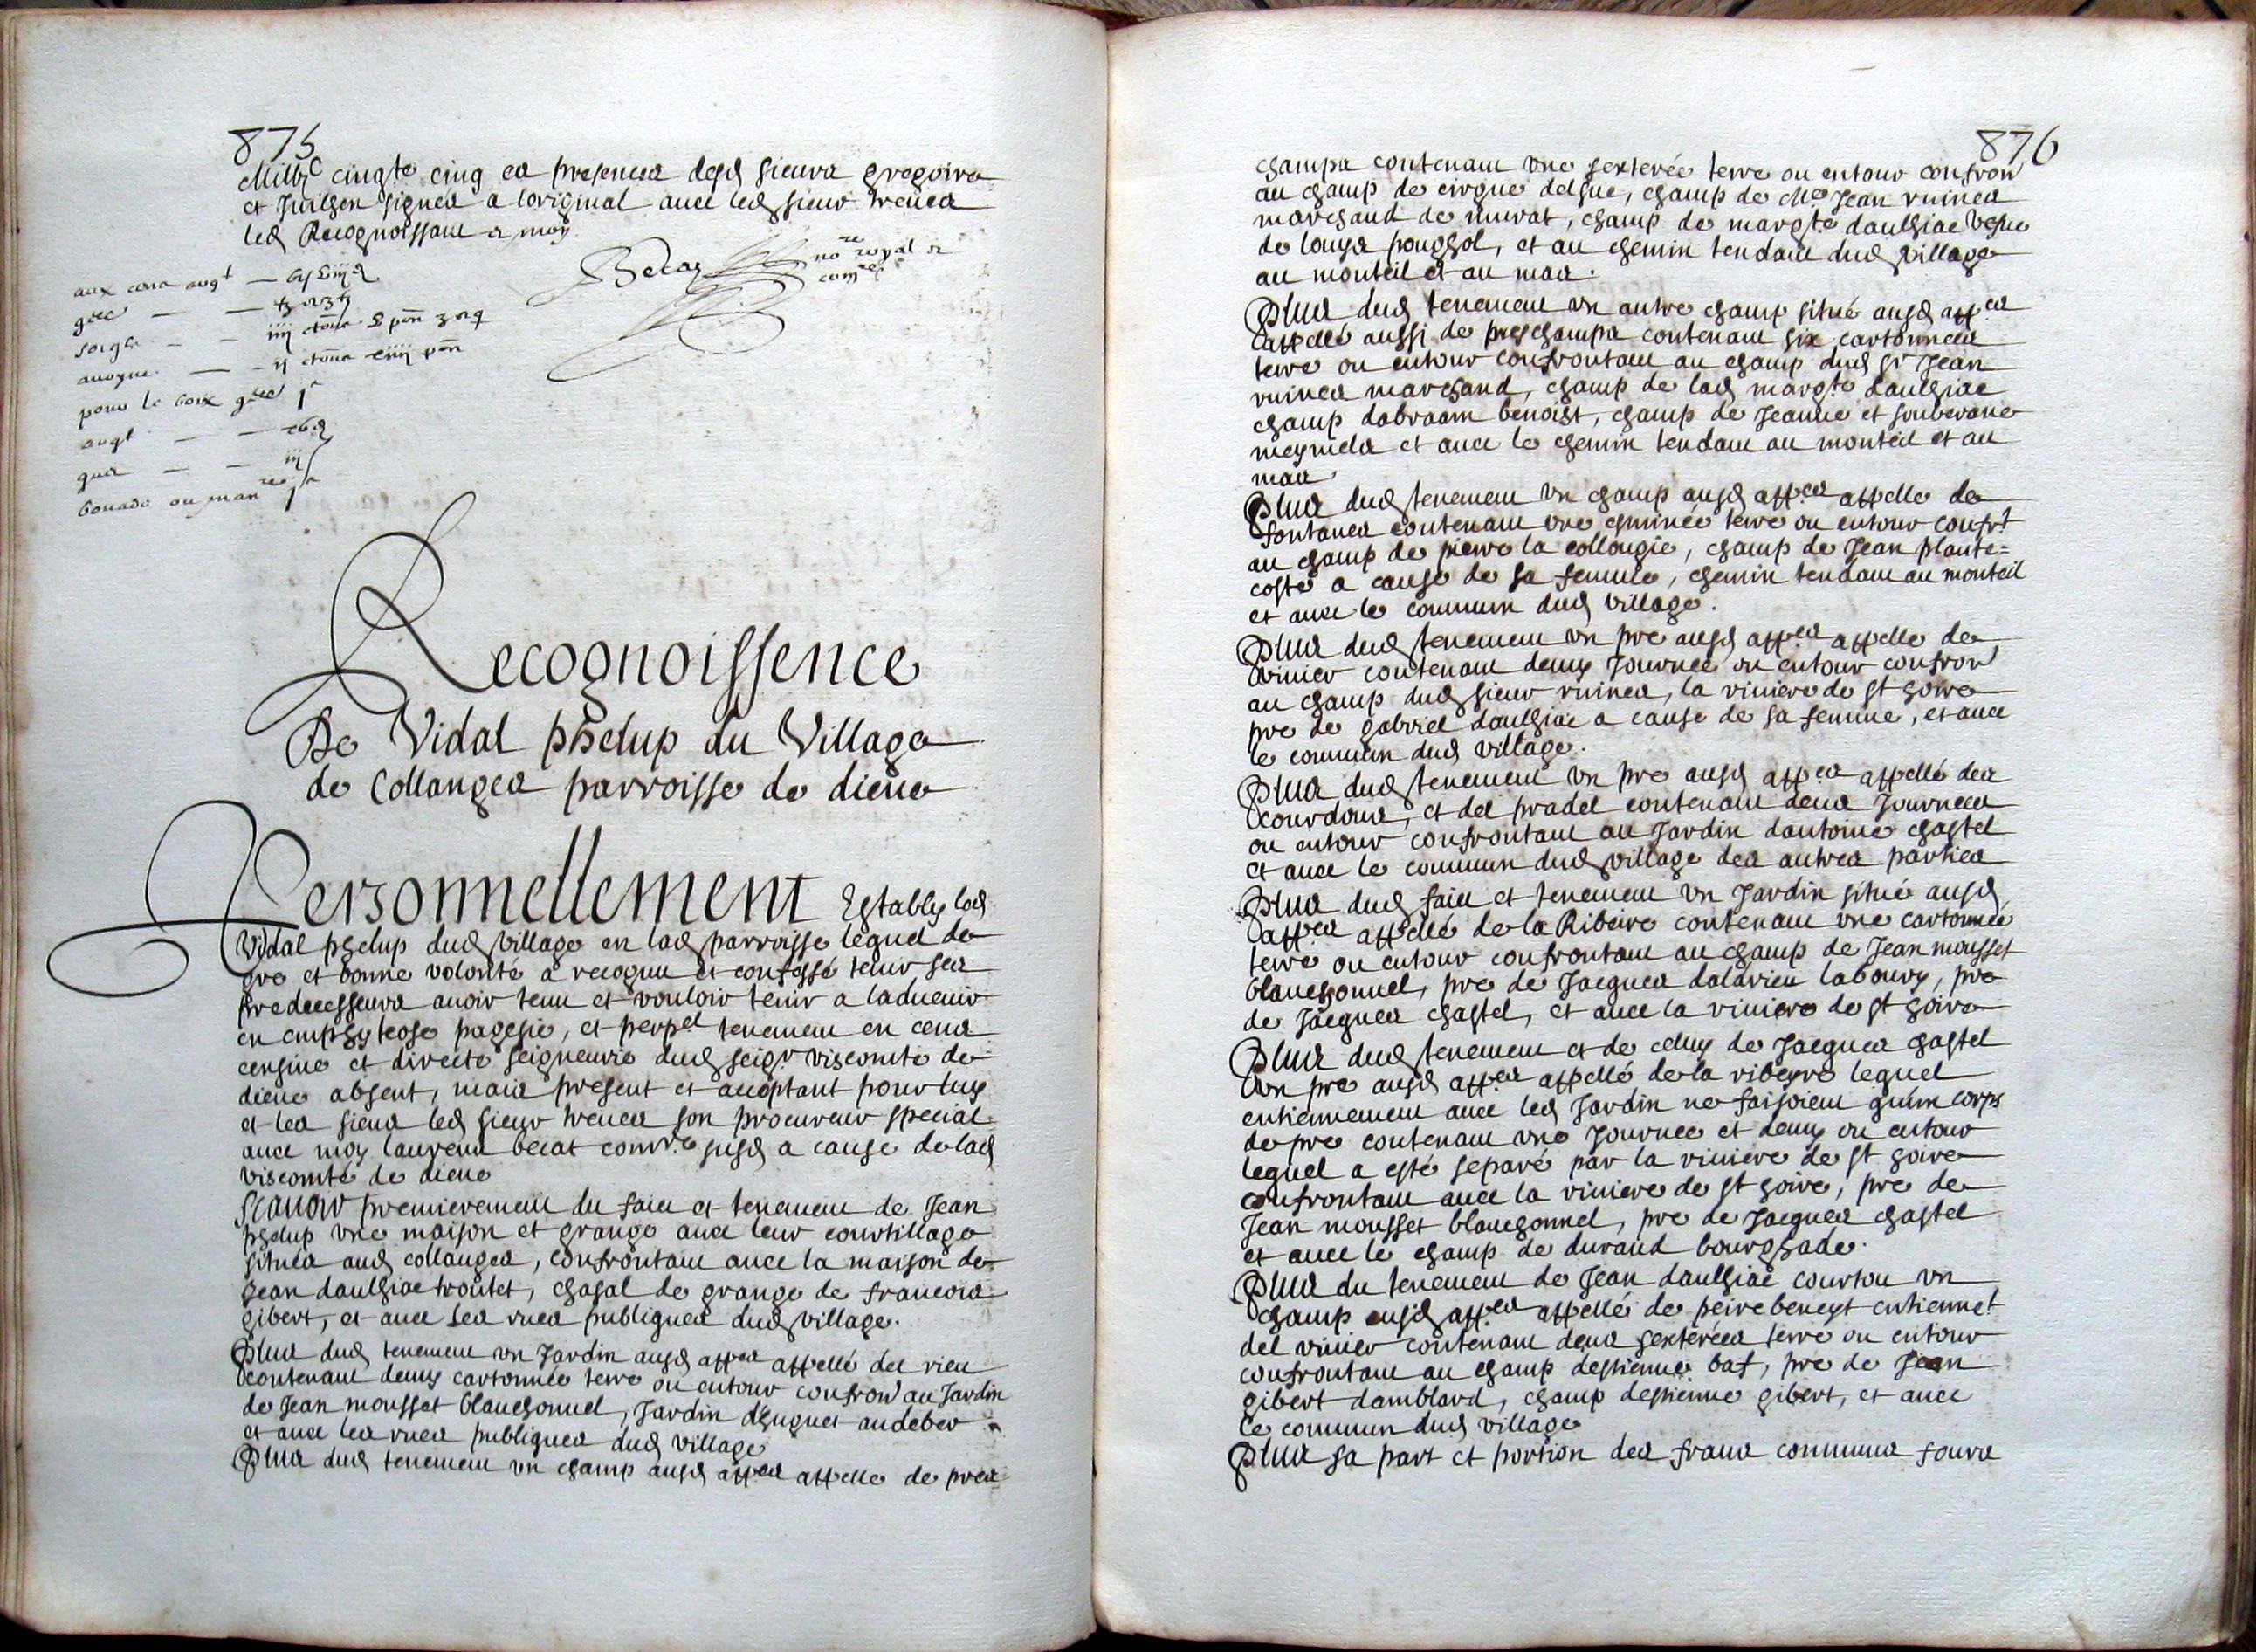 875
Mil vjc cinqte cinq es presences desd sieurs gregoire
et Juilhen signés a loriginal avec led sieur treves
led Recognoissant et moy
Becat nore royal et
comre
aux cens argt
gèle
soigle
avoyne
pour le boix gèle
argt
gua
bouade ou manre
Recognoissence
De Vidal phelup du Village
de Collanges parroisse de diene
Personnellement Estably led
Vidal phelup dud village en lad parroisse lequel de
gre et bonne volonté a recognu et confessé tenir ses
predecesseurs avoir tenu et vouloir tenir a ladvenir
en emphyteose pagesie, et perpel tenement en cens
censive et directe seigneurie dud seigr viscomte de
diene absent, mais present et acceptant pour luy
et les siens led sieur treves son procureur special
avec moy laurens becat comre susd a cause de lad
viscomté de diene
Scavoir premierement du faict et tenement de Jean
phelup une maison et grange avec leur courtillage
situés aud collanges, confrontant avec la maison de
Jean daulhiac troutet, chasal de grange de francois
gibert, et avec les rues publiques dud village.
Plus dud tenement un Jardin ausd appes appellé del rieu
contenant demy cartonnée terre ou entour confront au Jardin
de Jean mousset blanchonnel, Jardin d'huguet audeber
et avec les rues publiques dud village
Plus dud tenement un champ ausd appes appelle de pres
876
champs contenant une sexterée terre ou entour confront
au champ de cirgue delhue, champ de Me Jean ruines
marchand de murat, champ de margte daulhiac vefve
de louys poughol, et au chemin tendant dud village
au monteil et au mas.
Plus dud tenement un autre champ situé ausd appes
appellé aussi de preschamps contenant six cartonnées
terre ou entour confrontant au champ dud sr Jean
ruines marchand, champ de lad margte daulhiac
champ dabraam benoist, champ de Jeanne et souberane
meyniels et avec le chemin tendant au monteil et au
mas
Plus dud tenement un champ ausd appes appelle de
fontanes contenant une eminée terre ou entour confrt
au champ de pierre la collongie, champ de Jean plante=
coste a cause de sa femme, chemin tendant au monteil
et avec le commun dud village.
Plus dud tenement un pre ausd appes appelle de
vinier contenant demy Journée ou entour confront
au champ dud sieur ruines, la riviere de st goire
pre de gabriel daulhiac a cause de sa femme, et avec
le commun dud village.
Plus dud tenement un pre ausd appes appellé des
courdous, et del pradel contenant deux Journées
ou entour confrontant au Jardin dantoine chastel
et avec le commun dud village des autres parties
Plus dud faict et tenement un Jardin situé ausd
appes appellé de la Ribeire contenant une cartonnée
terre ou entour confrontant au champ de Jean mousset
blanchonnel, pre de Jacques dalarieu laboury, pre
de Jacques chastel, et avec la riviere de st goire
Plus dud tenement et de celuy de Jacques chastel
un pre ausd appes appellé de la ribeyre lequel
entiennement avec led Jardin ne faisoient qu'un corps
de pre contenant une Journée et demy ou entour
lequel a esté separé par la riviere de st goire
confrontant avec la riviere de st goire, pre de
Jean mousset blanchonnel, pre de Jacques chastel
et avec le champ de durand bourghade.
Plus du tenement de Jean daulhiac courtou un
champ ausd appes appellé de peirebeneyt entiennet
del vinier contenant deux sexterées terre ou entour
confrontant au champ destienne bat, pre de Jean
gibert damblard, champ destienne gibert, et avec
le commun dud village
Plus sa part et portion des fraux communs fours